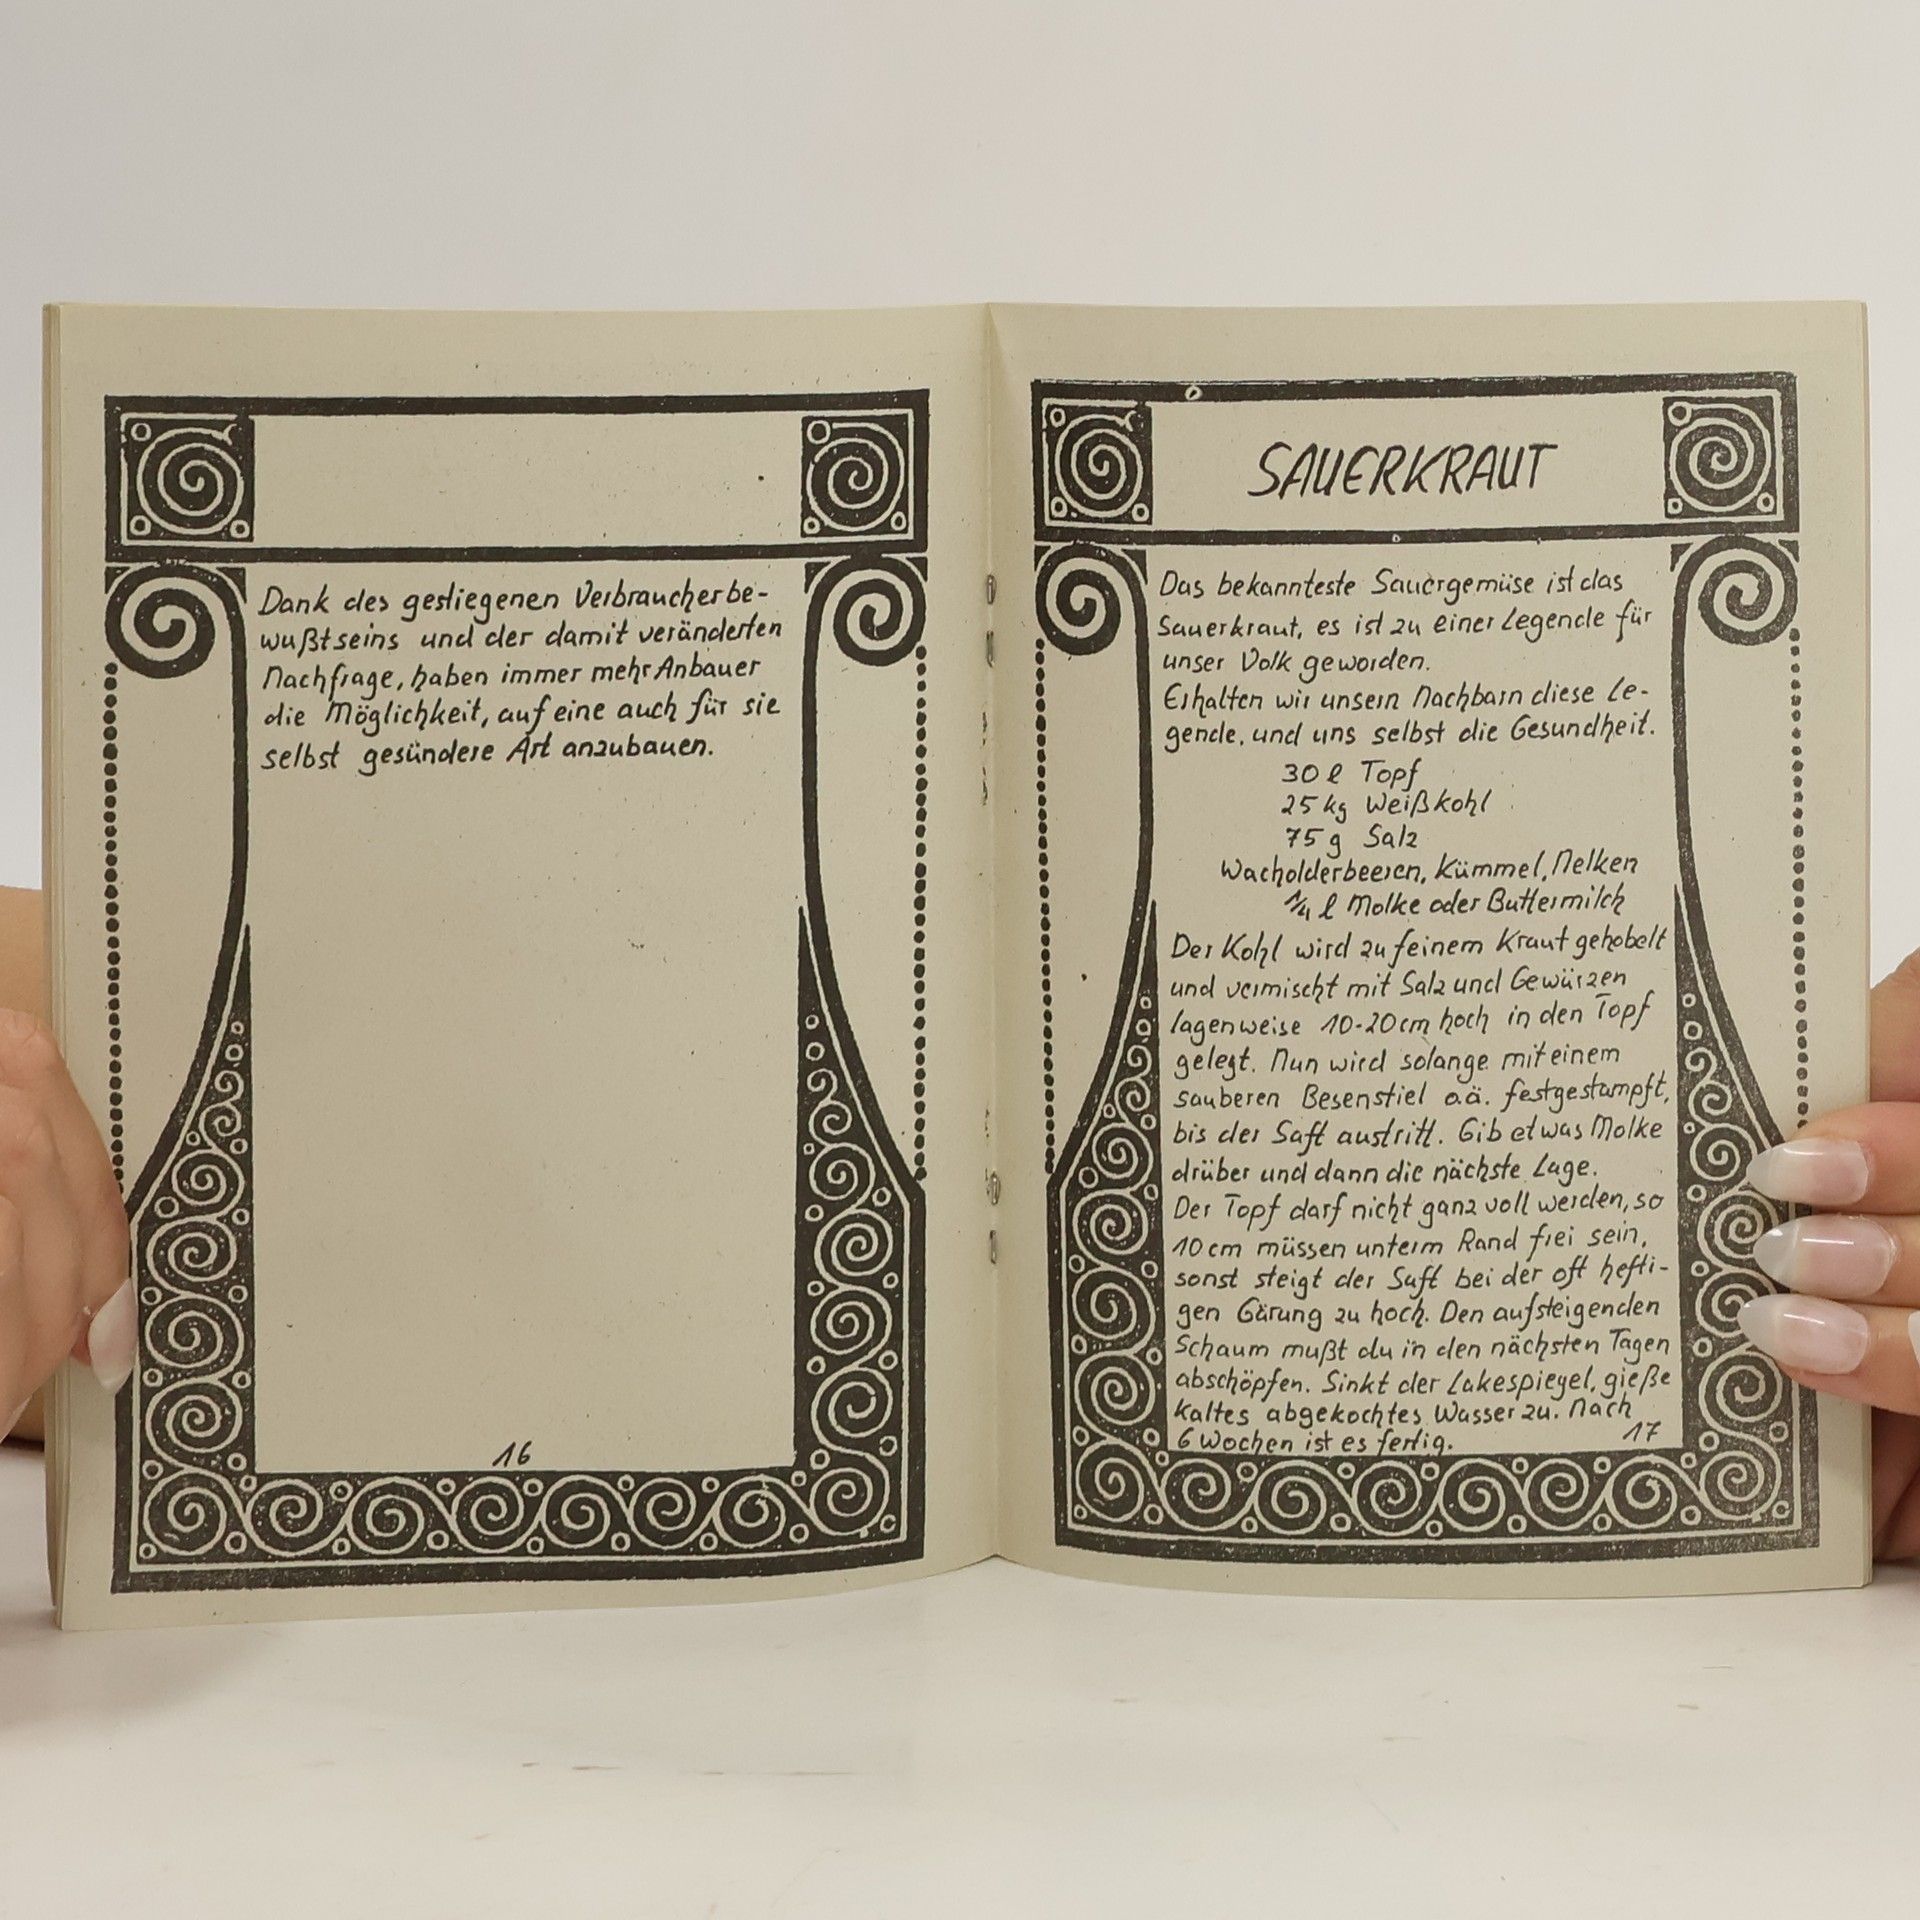 Dank des gestiegenen Verbraucherbe-
wußtseins und der damit veränderten
Nachfrage, haben immer mehr Anbauer
die Möglichkeit, auf eine auch für sie
selbst gesündere Art anzubauen.
16
SAUERKRAUT
Das bekannteste Sauergemüse ist das
Sauerkraut, es ist zu einer Legende für
unser Volk geworden.
Erhalten wir unsern Nachbarn diese Le-
gende, und uns selbst die Gesundheit.
30 l Topf
25 kg Weißkohl
75 g Salz
Wacholderbeeren, Kümmel, Nelken
1/4 l Molke oder Buttermilch
Der Kohl wird zu feinem Kraut gehobelt
und vermischt mit Salz und Gewürzen
lagenweise 10-20cm hoch in den Topf
gelegt. Nun wird solange mit einem
sauberen Besenstiel o.ä. festgestampft,
bis der Saft austritt. Gib etwas Molke
drüber und dann die nächste Lage.
Der Topf darf nicht ganz voll werden, so
10cm müssen unterm Rand frei sein,
sonst steigt der Saft bei der oft hefti-
gen Gärung zu hoch. Den aufsteigenden
Schaum mußt du in den nächsten Tagen
abschöpfen. Sinkt der Lakespiegel, gieße
kaltes abgekochtes Wasser zu. Nach
6 Wochen ist es fertig.
17